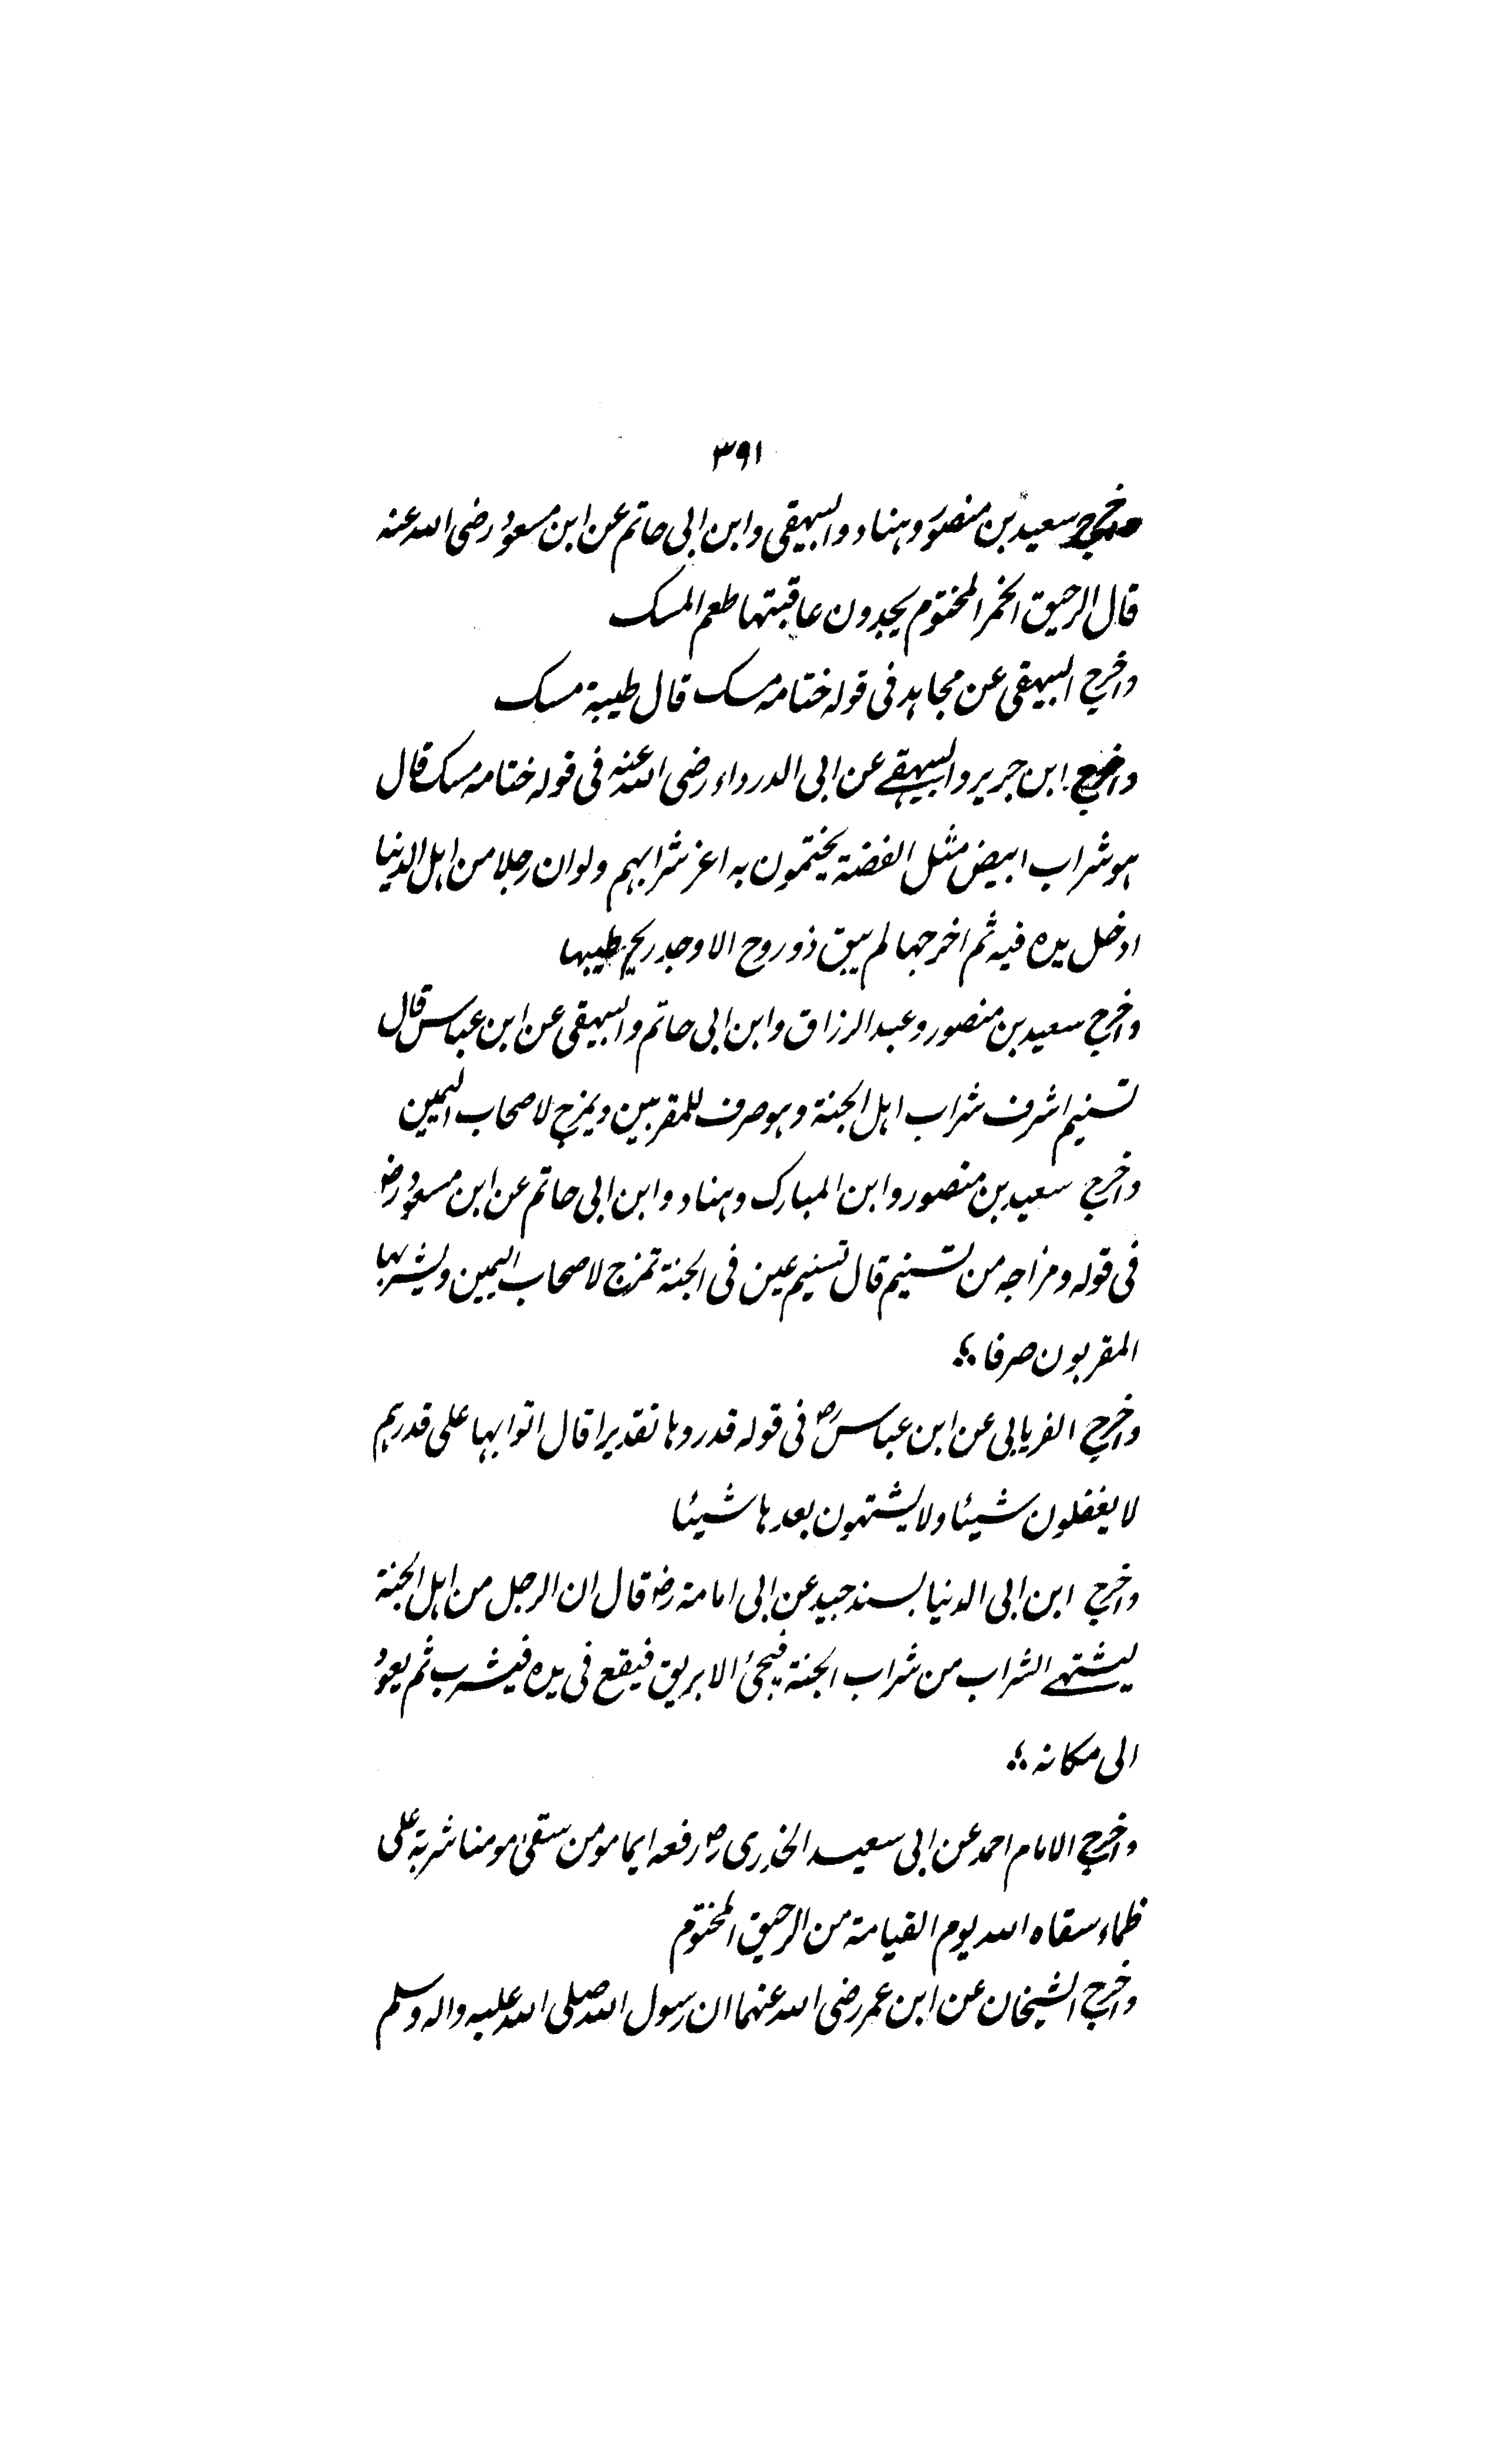 ٣٩١
واخرج سعيد بن منصور وهناد والبيهقى وابن ابى حاتم عن ابن مسعود رضى الله عنه
قال الرحيق الخمر المختوم يجدون عاقبتها طعم المسك
واخرج البيهقى عن مجاهد فى قوله ختامه مسك قال طيبة مسك
واخرج ابن جرير والبيهقے عن ابى الدرداء رضى الله عنه فى قوله ختامه مسك قال
هو شراب ابيض مثل الفضة يختمون به اعز شرابهم ولو ان رجلا من اهل الدنيا
ادخل يده فيه ثم اخرجها لم يبق ذو روح الا وجد ريح طيبها
واخرج سعيد بن منصور وعبد الرزاق وابن ابى حاتم والبيهقى عن ابن عباس قال
تسنيم اشرف شراب اهل الجنة وهو صرف للمقربين ويمزج لاصحاب اليمين
واخرج سعيد بن منصور وابن المبارك وهناد وابن ابى حاتم عن ابن مسعود رضـ
فى قوله ومزاجه من تسنيم قال تسنيم عين فى الجنة تمزج لاصحاب اليمين ويشربها
المقربون صرفا
واخرج الفريابى عن ابن عباس رض فى قوله قدروها تقديرا قال اتوا بها على قدرهم
لا يفضلون شيئا ولا يشتهون بعدها شيئا
واخرج ابن ابى الدنيا بسند جيد عن ابى امامة رضـ قال ان الرجل من اهل الجنة
ليشتهے الشراب من شراب الجنة فيجئ الابريق فيقع فى يده فيشرب ثم يعود
الى مكانه
واخرج الامام احمد عن ابى سعيد الخدرى رض رفعه ايما مومن سقى مومنا شربة على
ظماء سقاه الله يوم القيامة من الرحيق المختوم
واخرج الشيخان عن ابن عمر رضى الله عنهما ان رسول الله صلى الله عليه واله وسلم